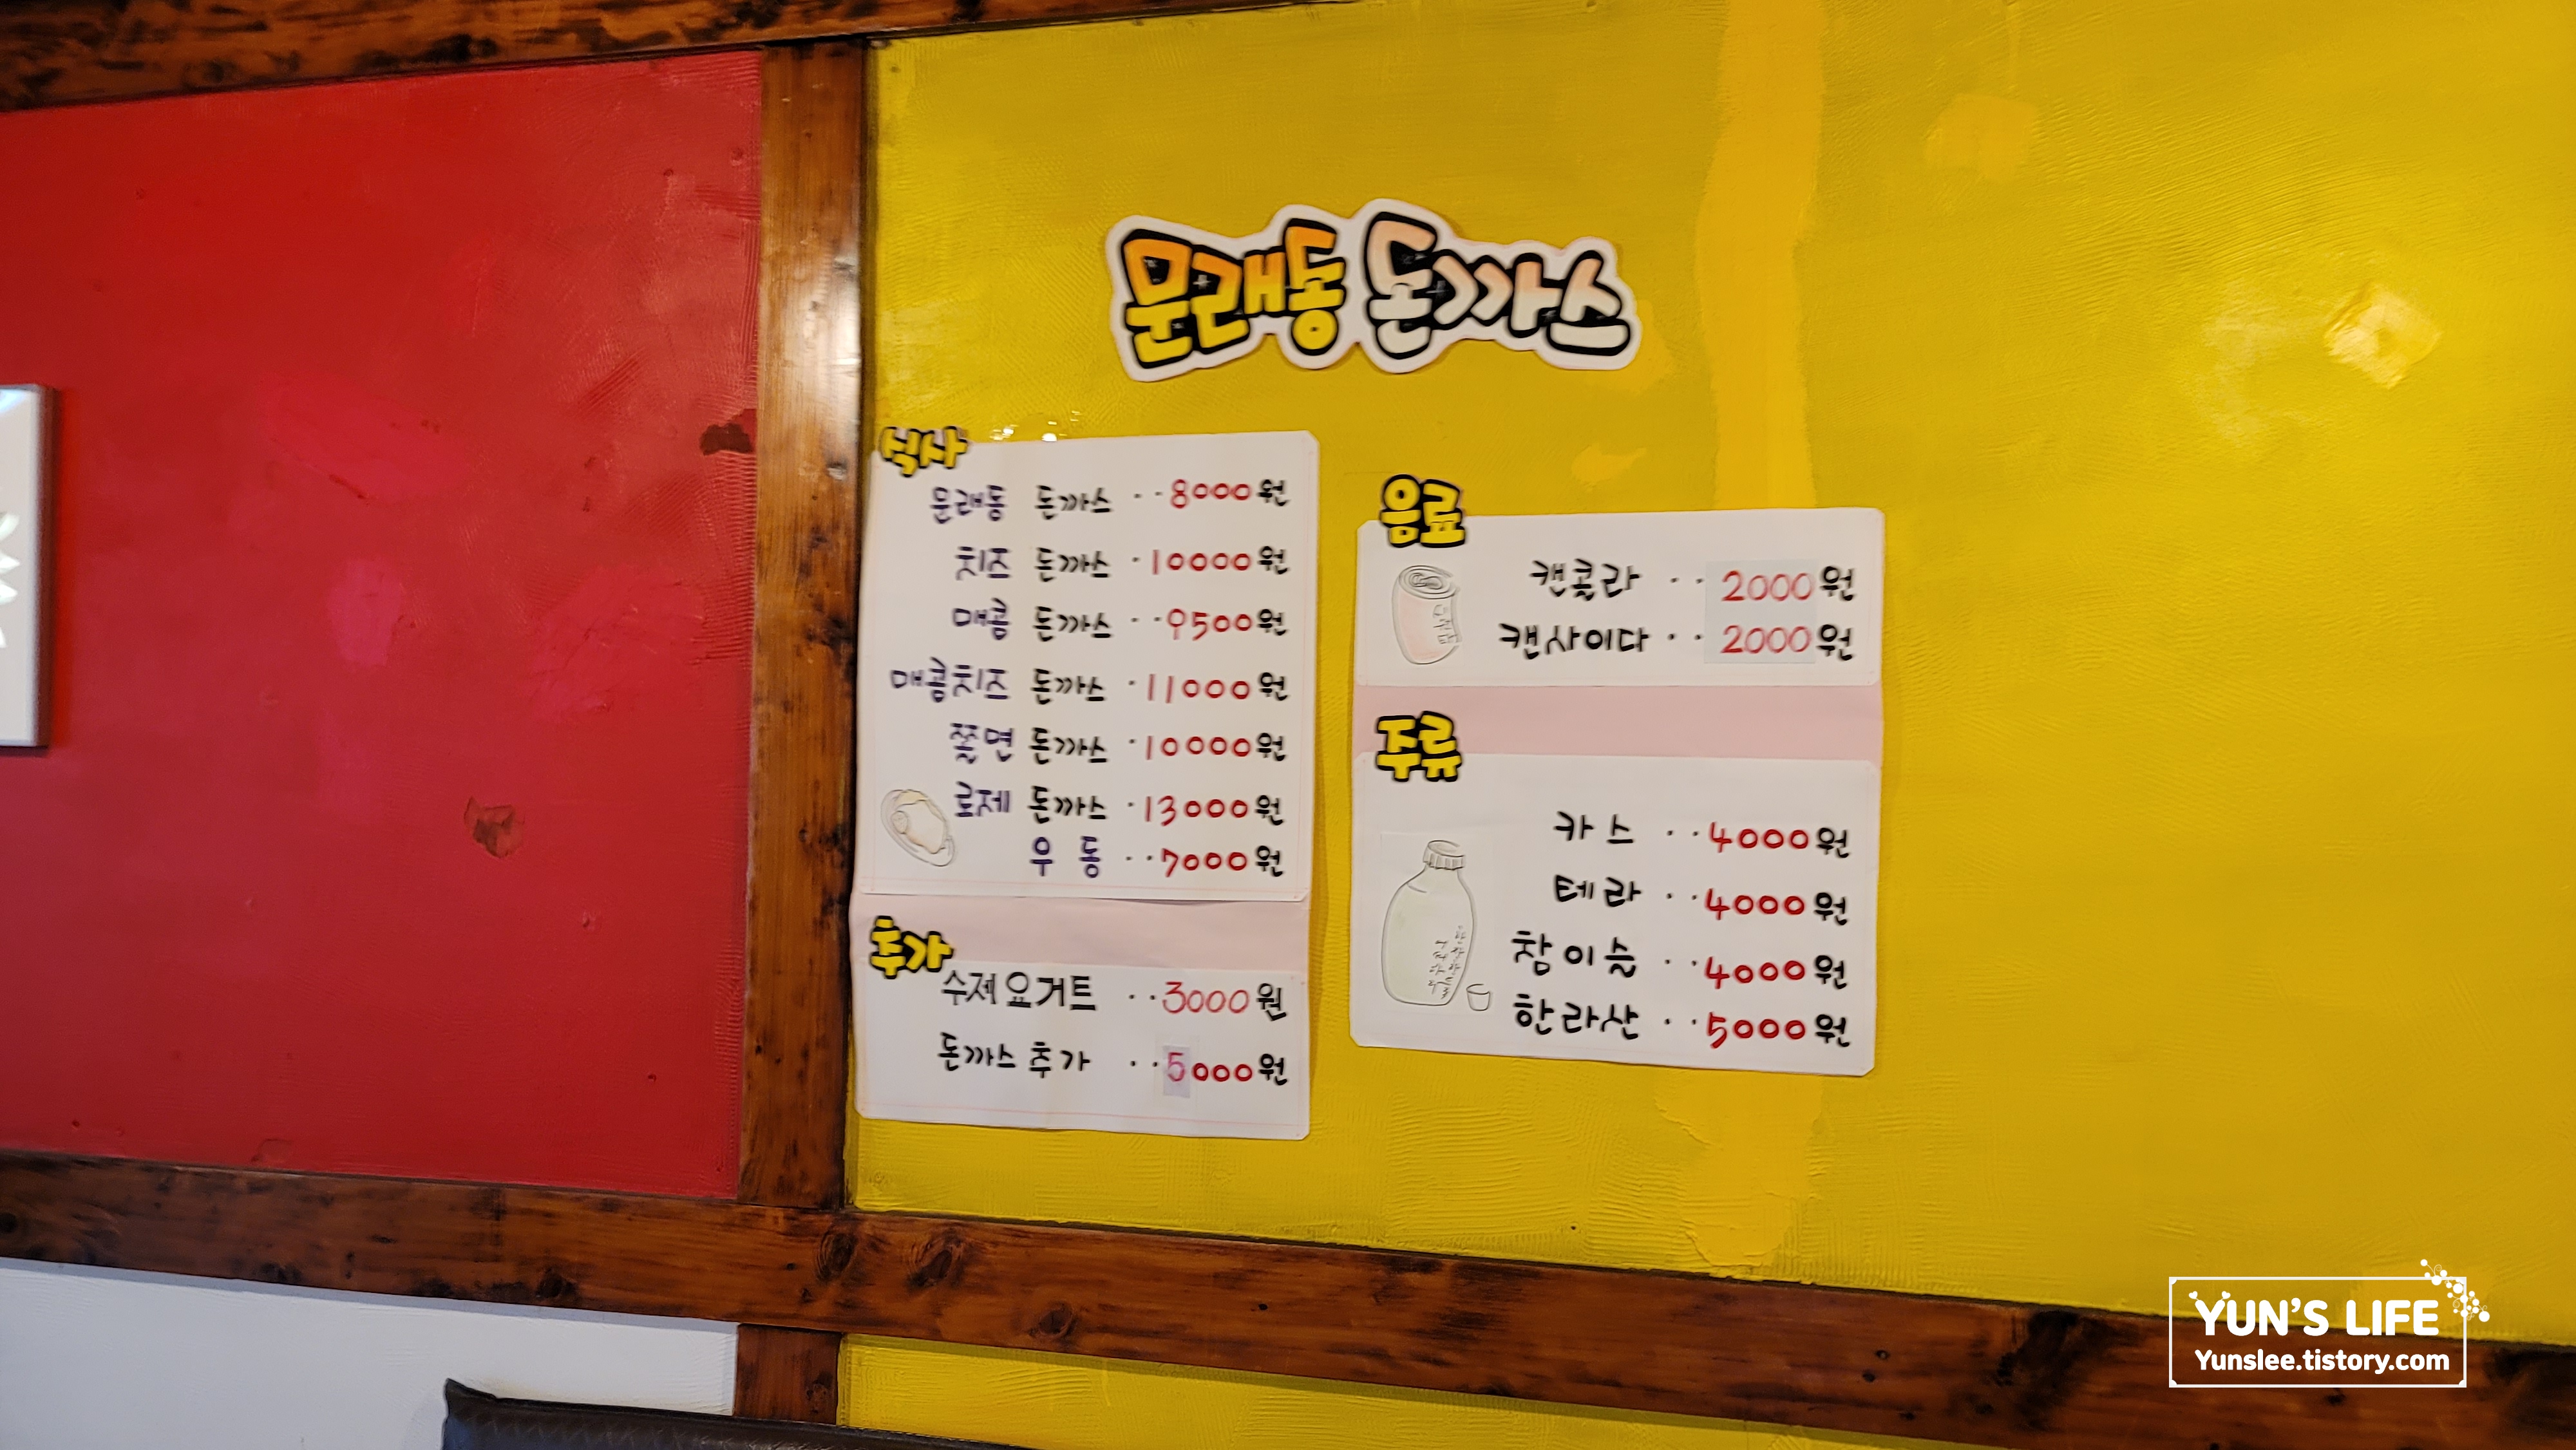 문래동 돈까스
식사
문래동 돈까스 ··8000원
치즈 돈까스 ·10000원
매콤 돈까스 ··9500원
매콤치즈 돈까스 ·11000원
쫄면 돈까스 ·10000원
로제 돈까스 ·13000원
우 동 ··7000원
추가
수제요거트 ··3000원
돈까스 추가 ··5000원
음료
캔콜라 ··2000원
캔사이다 ··2000원
주류
카스 ··4000원
테라 ··4000원
참이슬 ··4000원
한라산 ··5000원
YUN'S LIFE
Yunslee.tistory.com